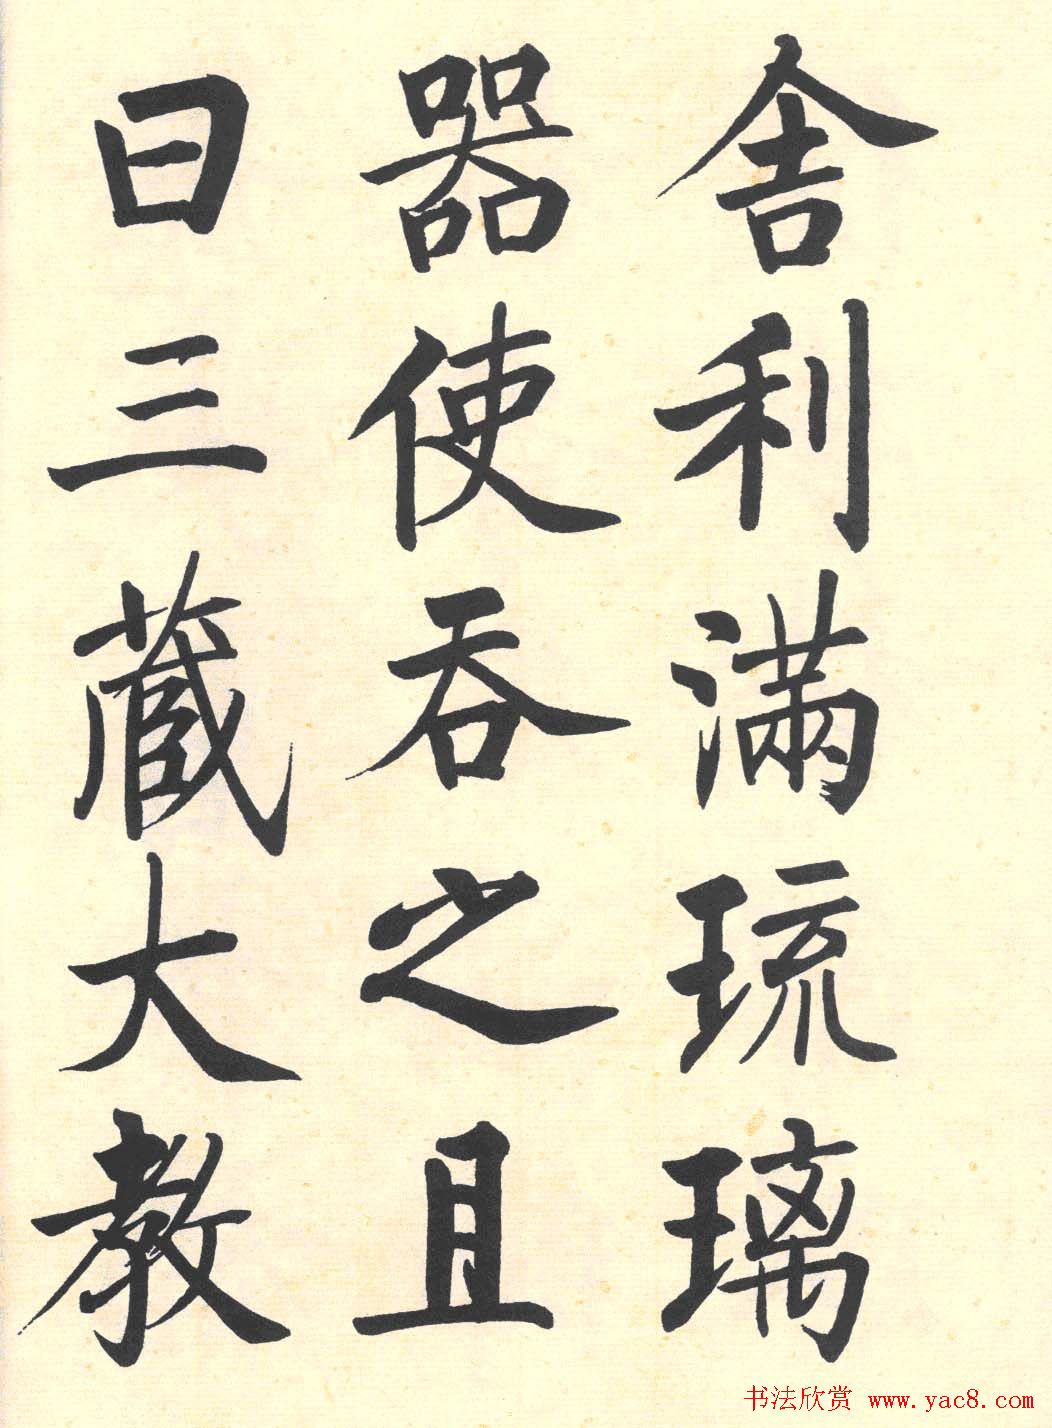 舍利滿琉璃
器使吞之且
曰三藏大教
书法欣赏 www.yac8.com